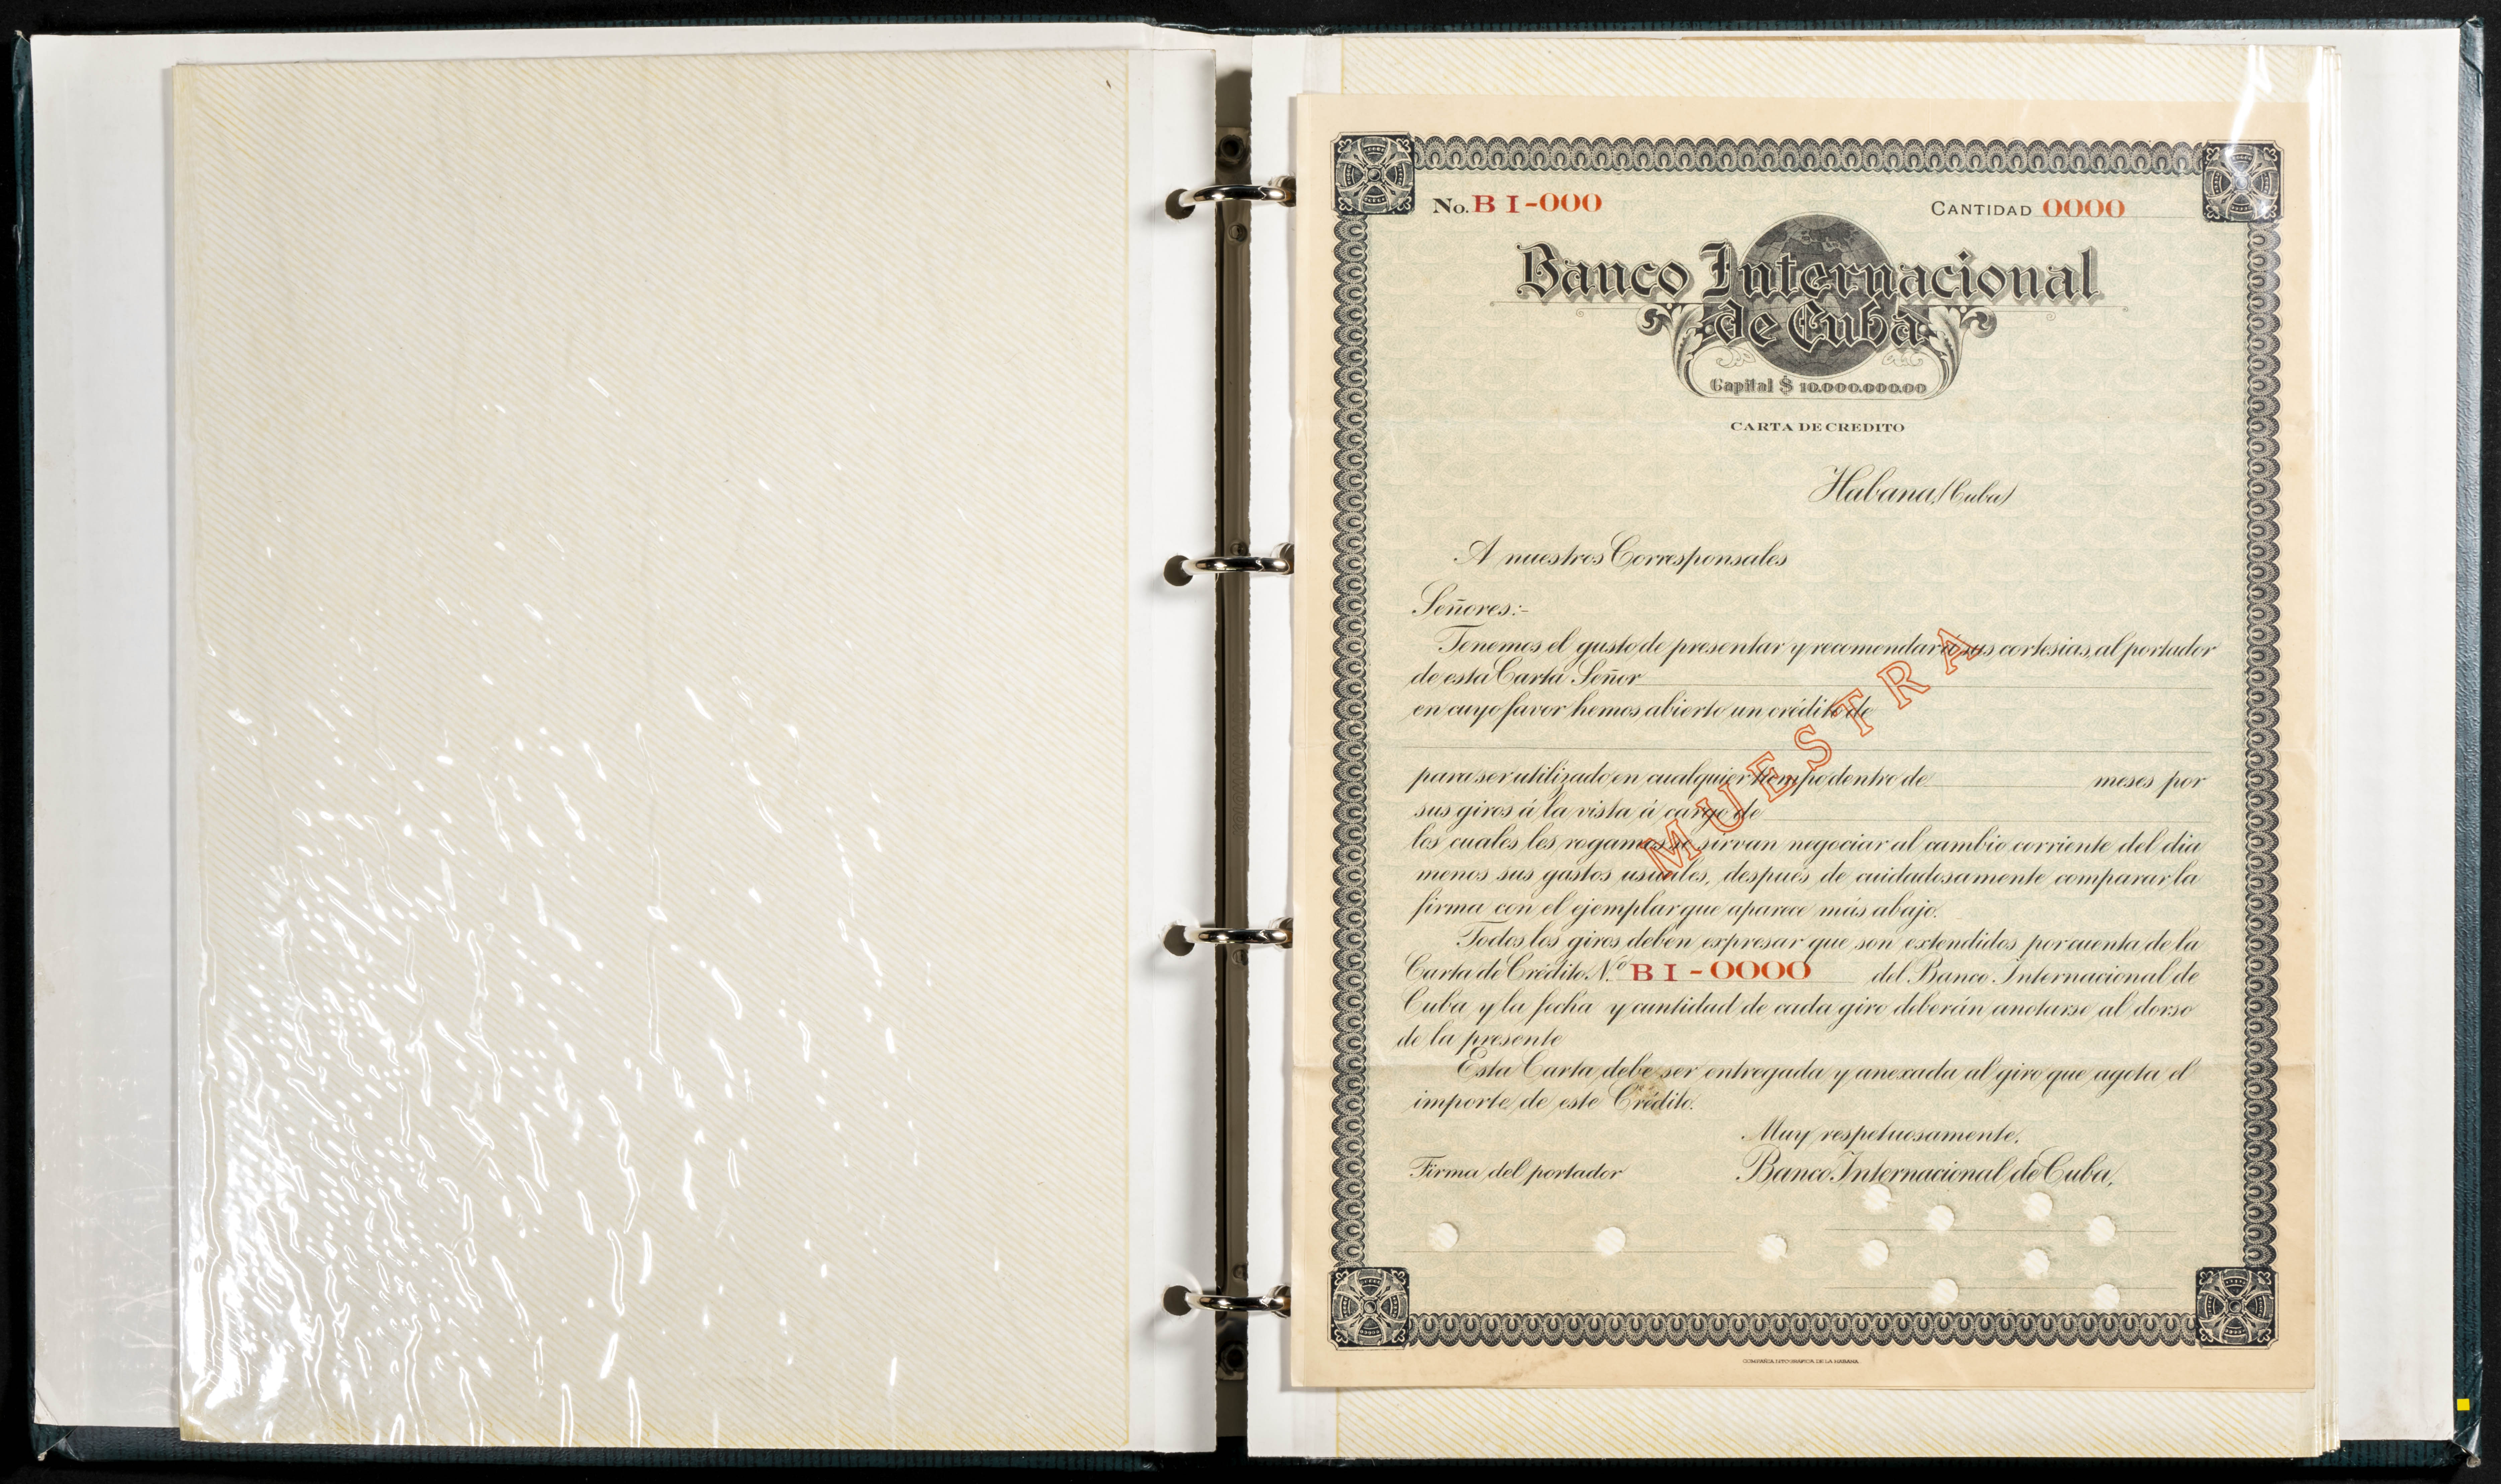 No. B I-000
CANTIDAD 0000
Banco Internacional
de Cuba
Capital $ 10.000.000.00
CARTA DE CREDITO
Habana, (Cuba)
A nuestros Corresponsales
Señores:-
Tenemos el gusto de presentar y recomendar a sus cortesias, al portador
de esta Carta Señor
en cuyo favor hemos abierto un crédito de
para ser utilizado en cualquier tiempo dentro de meses por
sus giros á la vista á cargo de
los cuales les rogamos se sirvan negociar al cambio corriente del dia
menos sus gastos usuales, después de cuidadosamente comparar la
firma con el ejemplar que aparece más abajo.
Todos los giros deben expresar que son extendidos por cuenta de la
Carta de Crédito N.º B I - 0000 del Banco Internacional de
Cuba y la fecha y cantidad de cada giro deberán anotarse al dorso
de la presente
Esta Carta debe ser entregada y anexada al giro que agota el
importe de este Crédito.
Muy respetuosamente,
Firma del portador
Banco Internacional de Cuba,
MUESTRA
COMPAÑIA LITOGRAFICA DE LA HABANA